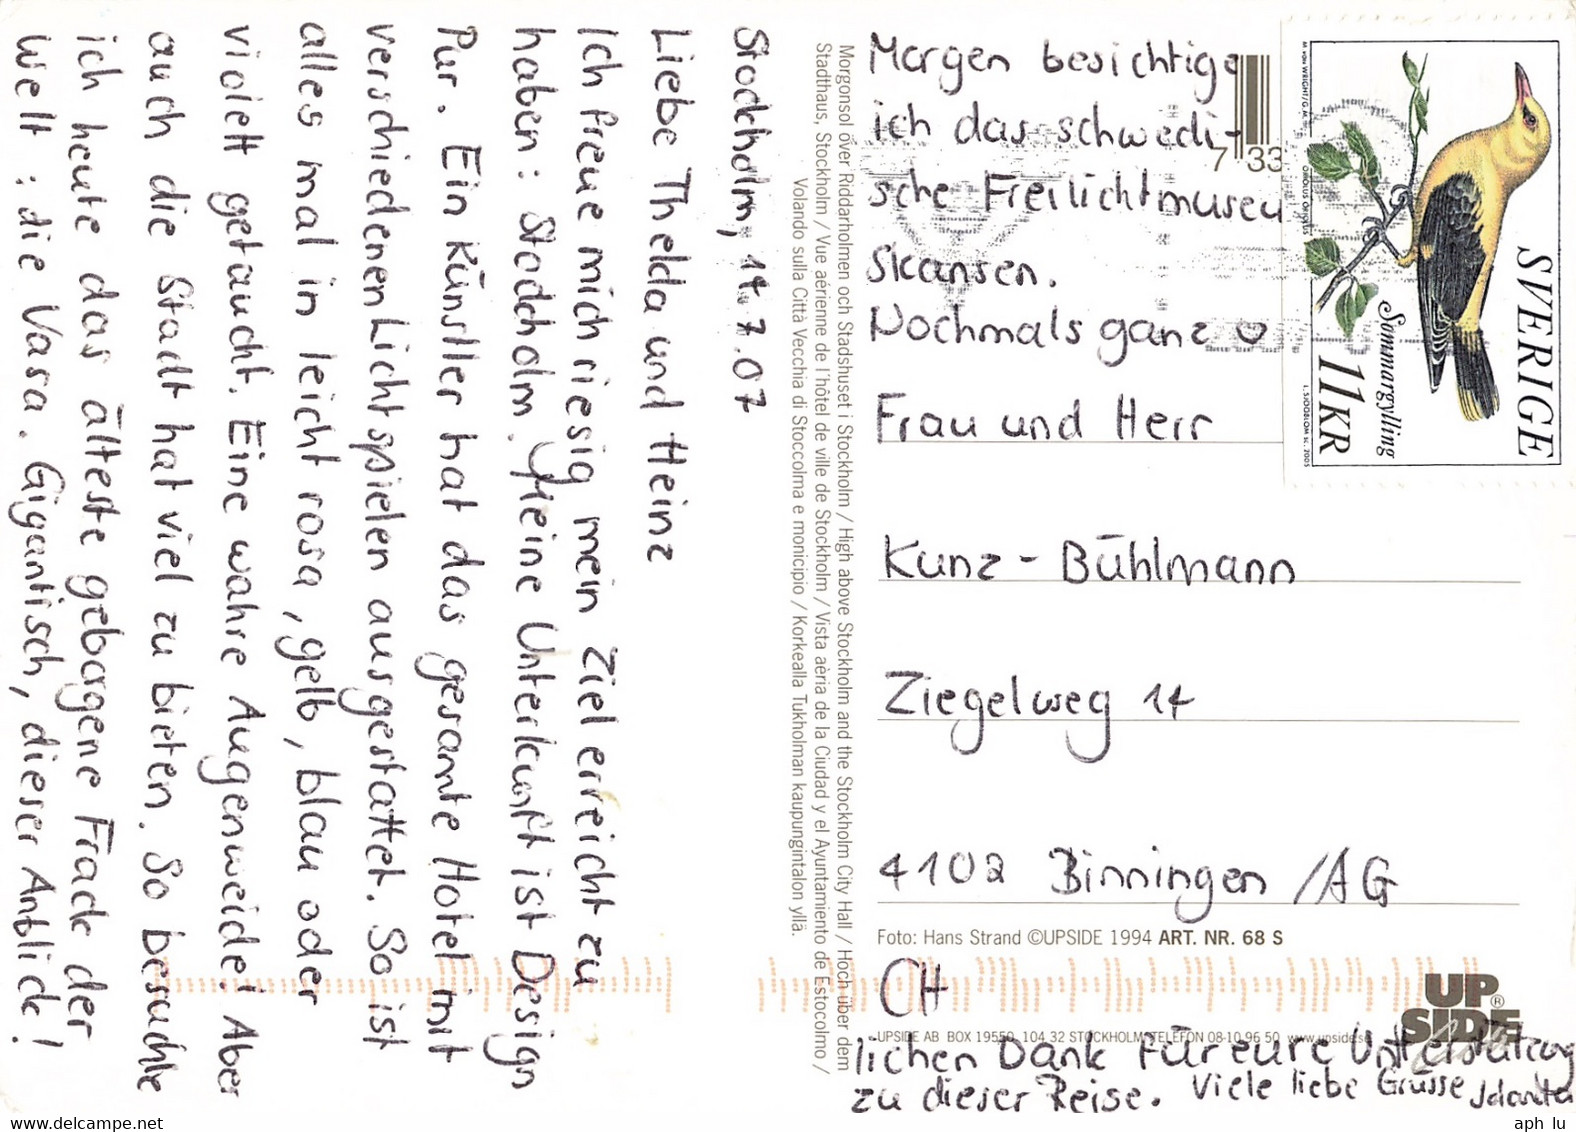 Stockholm, 14.7.07
Liebe Thelda und Heinz
Ich freue mich riesig mein Ziel erreicht zu
haben: Stockholm. Meine Unterkunft ist Design
Pur. Ein Künstler hat das gesamte Hotel mit
verschiedenen Lichtspielen ausgestattet. So ist
alles mal in leicht rosa, gelb, blau oder
violett getaucht. Eine wahre Augenweide! Aber
auch die Stadt hat viel zu bieten. So besuche
ich heute das älteste geborgene Frack der
Welt: die Vasa. Gigantisch, dieser Anblick!
Morgen besichtige
ich das schwedi-
sche Freilichtmuseu
Skansen.
Nochmals ganz ♡
lichen Dank für eure Unterstützung
zu dieser Reise. Viele liebe Grüsse
Frau und Herr
Kunz-Bühlmann
Ziegelweg 14
4102 Binningen /AG
CH
Morgonsol över Riddarholmen och Stadshuset i Stockholm / High above Stockholm and the Stockholm City Hall / Hoch über dem
Stadthaus, Stockholm / Vue aérienne de l'hôtel de ville de Stockholm / Vista aèria de la Ciudad y el Ayuntamiento de Estocolmo /
Volando sulla Città Vecchia di Stoccolma e monicipio / Korkealla Tukholman kaupungintalon yllä.
7 33
SVERIGE
Sommargylling
11 KR
M. VON WRIGHT/G.
ORIOLUS ORIOLUS
L. SJÖÖBLOM SC. 2005
Foto: Hans Strand ©UPSIDE 1994 ART. NR. 68 S
UP
SIDE®
UPSIDE AB BOX 19550, 104 32 STOCKHOLM TELEFON 08-10 96 50 www.upside.se
aph lu